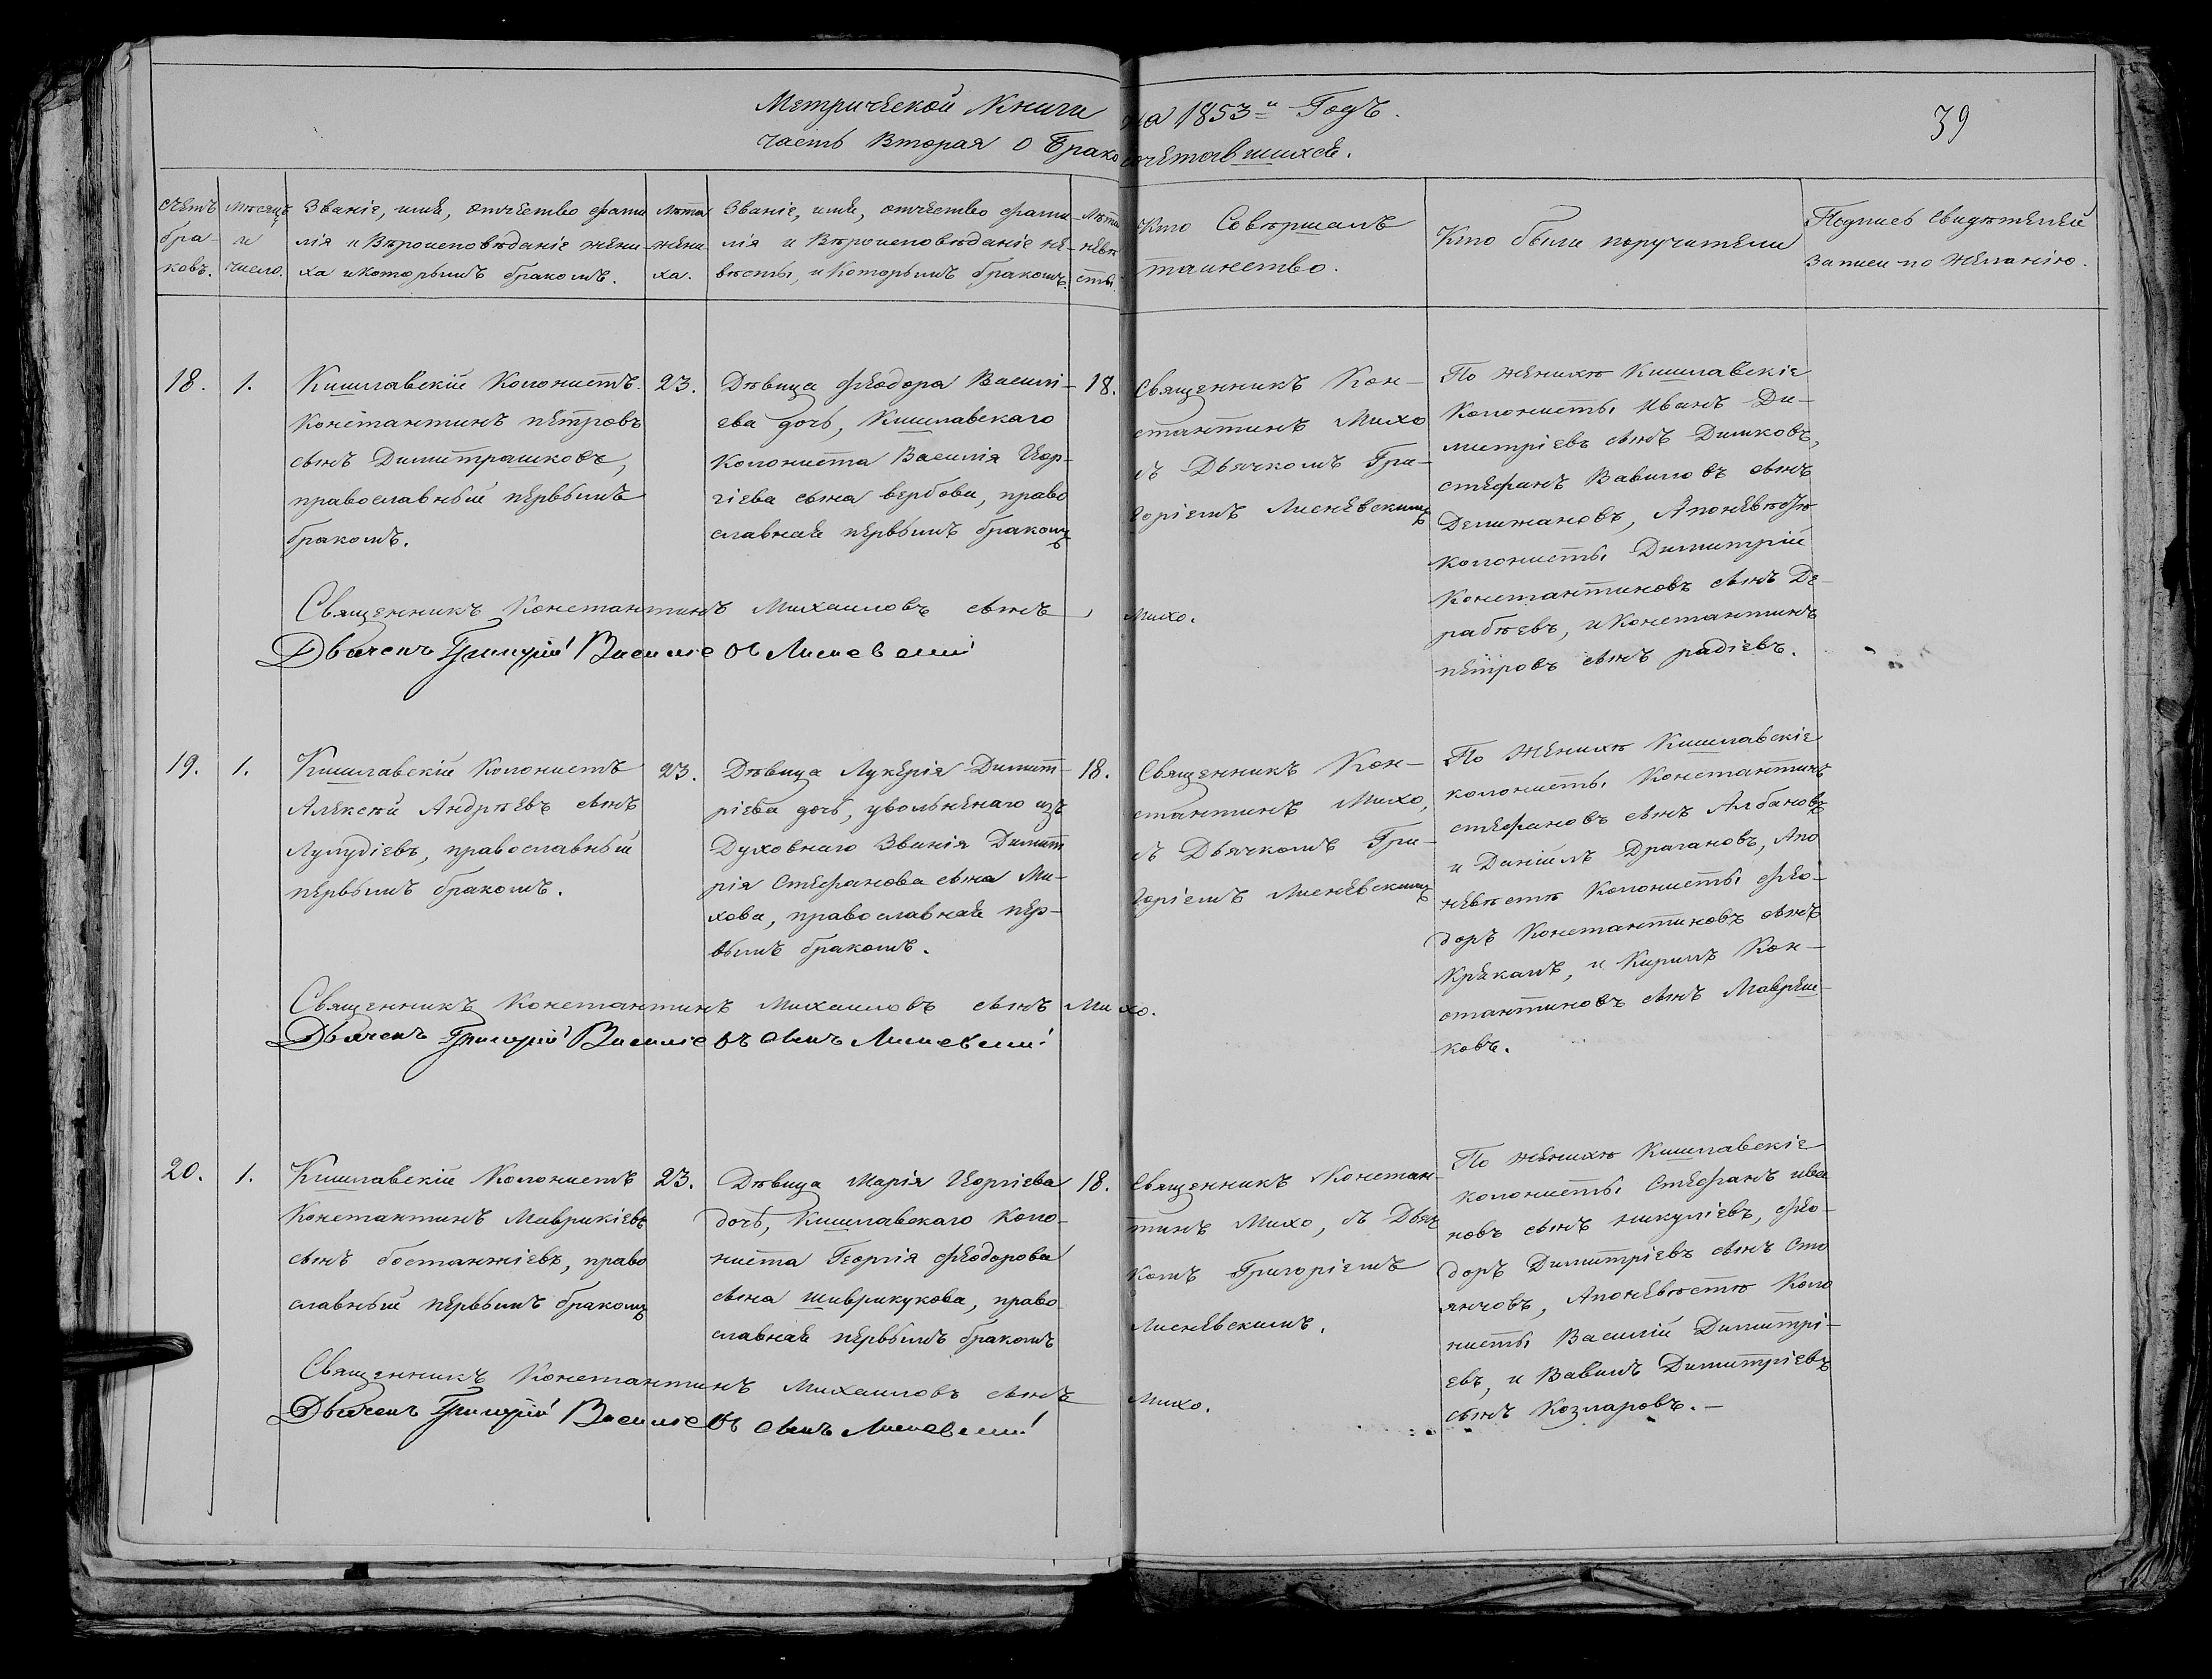 Метрической Книги на 1853й Годъ.
39
часть Вторая о Бракосочетавшихся.
счетъ браковъ.
Мѣсяцъ и число.
Званіе, имя, отчество фами-
лія и Вѣроисповѣданіе жени-
ха и которымъ бракомъ.
Лѣта жениха.
Званіе, имя, отчество фами-
лія и Вѣроисповѣданіе не-
вѣсты, и Которымъ бракомъ.
Лѣта невѣсты.
Кто Совершалъ
таинство.
Кто были поручители
Подпись свидѣтелей
записи по желанію.
18.
1.
Кишлавскій Колонистъ
Константинъ петровъ
сынъ Димитрашковъ,
православный первымъ
бракомъ.
23.
Дѣвица Феодора Василі-
ева дочь, Кишлавскаго
Колониста Василія Геор-
гіева сына вербова, право
славная первымъ бракомъ
18.
Священникъ Кон-
стантинъ Михо
съ Дьячкомъ Гри-
горіемъ Лисневскимъ
По женихѣ Кишлавскіе
Колонисты Иванъ Ди-
митріевъ сынъ Димковъ,
стефанъ Вавиловъ сынъ
Делижановъ, А по невѣстѣ
колонисты Димитрій
Константиновъ сынъ Де-
рабѣевъ, и Константинъ
петровъ сынъ радіевъ.
Священникъ Константинъ Михаиловъ сынъ Михо.
Дьячекъ Григорій Василіевъ Лисневскій
19.
1.
Кишлавскій Колонистъ
Алексѣй Андрѣевъ сынъ
Лулудіевъ, православный
первымъ бракомъ.
23.
Дѣвица Лукерія Димит-
ріева дочь, увольненаго изъ
Духовнаго Званія Димит
рія Стефанова сына Ми-
хова, православная пер-
вымъ бракомъ.
18.
Священникъ Кон-
стантинъ Михо,
съ Дьячкомъ Гри-
горіемъ Лисневскимъ
По Женихѣ Кишлавскіе
колонисты Константинъ
стефановъ сынъ Албановъ
и Даніилъ Драгановъ, А по
невѣстѣ Колонисты Фео-
доръ Константиновъ сынъ
Крекалъ, и Кирилъ Кон-
стантиновъ сынъ Мавреш-
ковъ.
Священникъ Константинъ Михаиловъ сынъ Михо.
Дьячекъ Григорій Василіевъ сынъ Лисневскій
20.
1.
Кишлавскій Колонистъ
Константинъ Маврикіевъ
сынъ бостанжіевъ, право
славный первымъ бракомъ
23.
Дѣвица Марія Георгіева
дочь, Кишлавскаго Коло-
ниста Георгія Феодорова
сына шиврикукова, право
славная первымъ бракомъ
18.
Священникъ Констан-
тинъ Михо, съ Дьяч
комъ Григоріемъ
Лисневскимъ.
По женихѣ Кишлавскіе
колонисты Стефанъ ива
новъ сынъ никуліевъ, Фео-
доръ Димитріевъ сынъ Сто
янчовъ, А по невѣстѣ Коло
нисты Василій Димитрі-
евъ, и Вавилъ Димитріевъ
сынъ Козларовъ.-
Священникъ Константинъ Михаиловъ сынъ Михо.
Дьячекъ Григорій Василіевъ сынъ Лисневскій